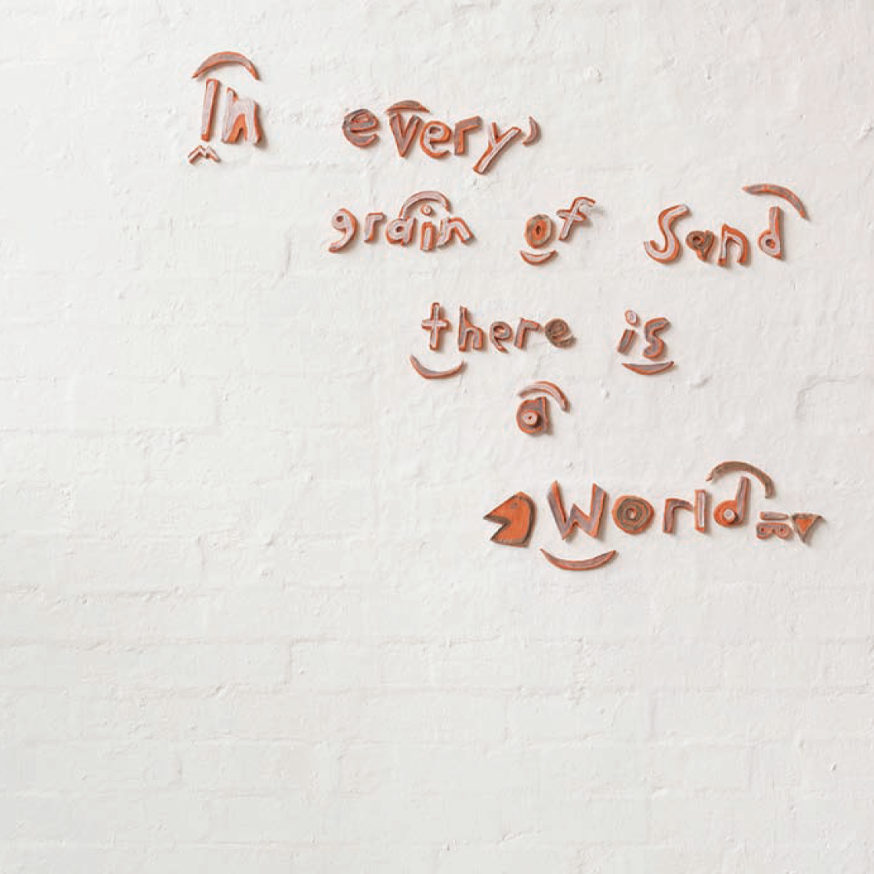 In every
grain of Sand
there is
a
World